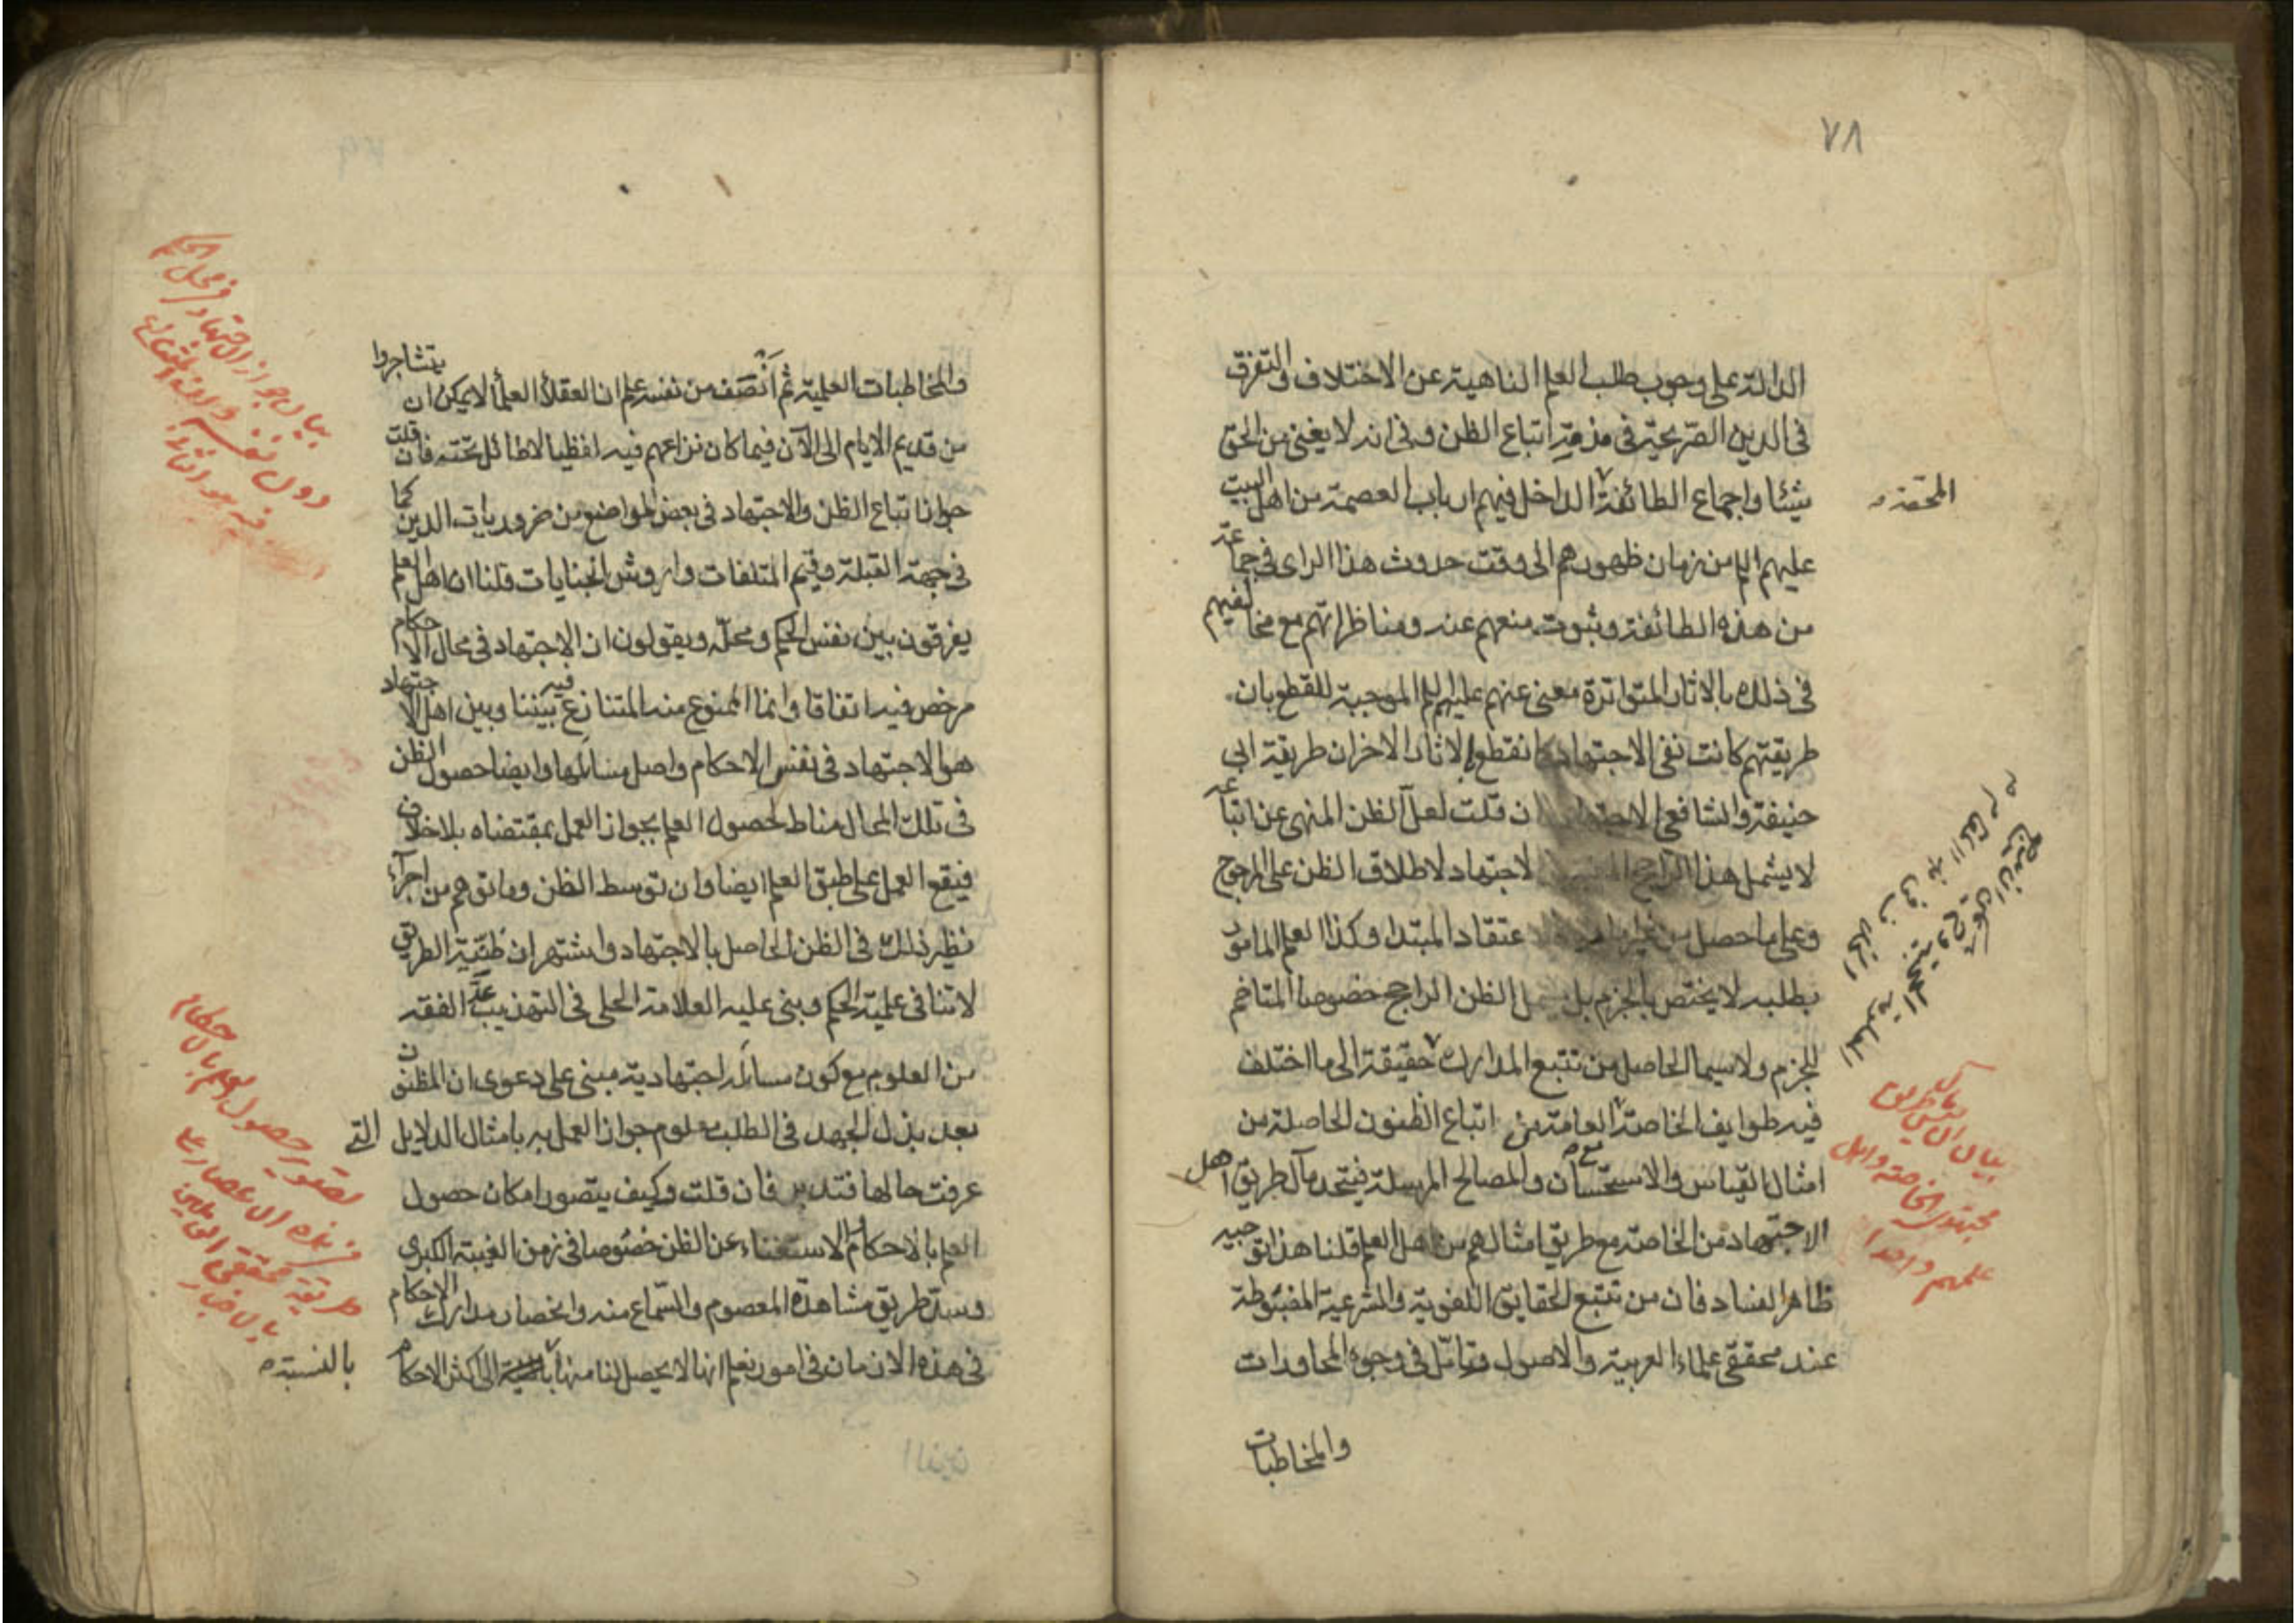 ٧٨
الدالة على وجوب طلب العلم الناهية عن الاختلاف والتفرق
فى الدين الصريحة فى مذمة اتباع الظن وفى انه لا يغنى من الحق
شيئا واجماع الطائفة الداخل فيهم ارباب العصمة من اهل البيت
المحقة
عليهم السلم من زمان ظهورهم الى وقت حدوث هذا الراى فى جماعة
من هذه الطائفة وثبوت منعهم عنه ومناظراتهم مع مخالفيهم
فى ذلك بالاثار المتواترة معنى عنهم عليهم السلم الموجبة للقطع بان
طريقتهم كانت نفى الاجتهاد كما نقطع بالاثار الاخر ان طريقة ابى
حنيفة والشافعى الاجتهاد ان قلت لعل الظن المنهى عن اتباعه
لا يشمل هذا الراجح الاجتهاد لاطلاق الظن على المرجوح
وعلى ما حصل من غير اعتقاد المبتدا وكذا العلم المامور
بطلبه لا يختص بالجزم بل يشمل الظن الراجح خصوصا المتاخم
للجزم ولا سيما الحاصل من تتبع المدارك حقيقة الى ما اختلف
فيه طوايف الخاصة العامة من اتباع الظنون الحاصلة من
امثال القياس والاستحسان والمصالح المرسلة فيتحد مآل طريق اهل
الاجتهاد من الخاصة مع طريق امثالهم من اهل العلم قلنا هذا توجيه
ظاهر الفساد فان من تتبع الحقايق اللغوية والشرعية المضبوطة
عند محققى علماء العربية والاصول وتامل فى وجوه المحاورات
والمخاطبات
مجتهدى الخاصة واهل
علمهم واحدا
والمخاطبات العلمية ثم انصف من نفسه علم ان العقلاء العلماء لا يمكن ان يتشاجروا
من قديم الايام الى الآن فيما كان نزاعهم فيه لفظيا لا طائل تحته فان قلت
جواز اتباع الظن والاجتهاد فى بعض المواضع من ضروريات الدين كما
فى جهة القبلة وقيم المتلفات واروش الجنايات قلنا ان اهل العلم
يفرقون بين نفس الحكم ومحله ويقولون ان الاجتهاد فى محال الاحكام
مرخص فيه اتفاقا وانما الممنوع منه المتنازع فيه بيننا وبين اهل الاجتهاد
هو الاجتهاد فى نفس الاحكام واصل مسائلها وايضا حصول الظن
فى تلك المحال مناط لحصول العلم بجواز العمل بمقتضاه بلا خلاف
فيقع العمل على طبق العلم ايضا وان توسط الظن وما توهم من اجراء
نظير ذلك فى الظن الحاصل بالاجتهاد واشتهر ان ظنية الطريق
لا تنافى علمية الحكم وبنى عليه العلامة الحلى فى التهذيب عد الفقه
من العلوم مع كون مسائله اجتهادية مبنى على دعوى ان المظنون
بعد بذل الجهد فى الطلب معلوم جواز العمل به بامثال الدلايل التى
عرفت حالها فتدبر فان قلت وكيف يتصور امكان حصول
العلم بالاحكام والاستغناء عن الظن خصوصا فى زمن الغيبة الكبرى
وسد طريق مشاهدة المعصوم والسماع منه وانحصار مدارك الاحكام
فى هذه الازمان فى امور نعلم انها لا يحصل لنا منها بالنسبة الى اكثر الاحكام
بالنسبة
بيان جواز الاجتهاد فى محل الحكم
دون نفسه
تصوير حصول العلم بالاحكام
فى هذه الاعصار على
طريقة محققى